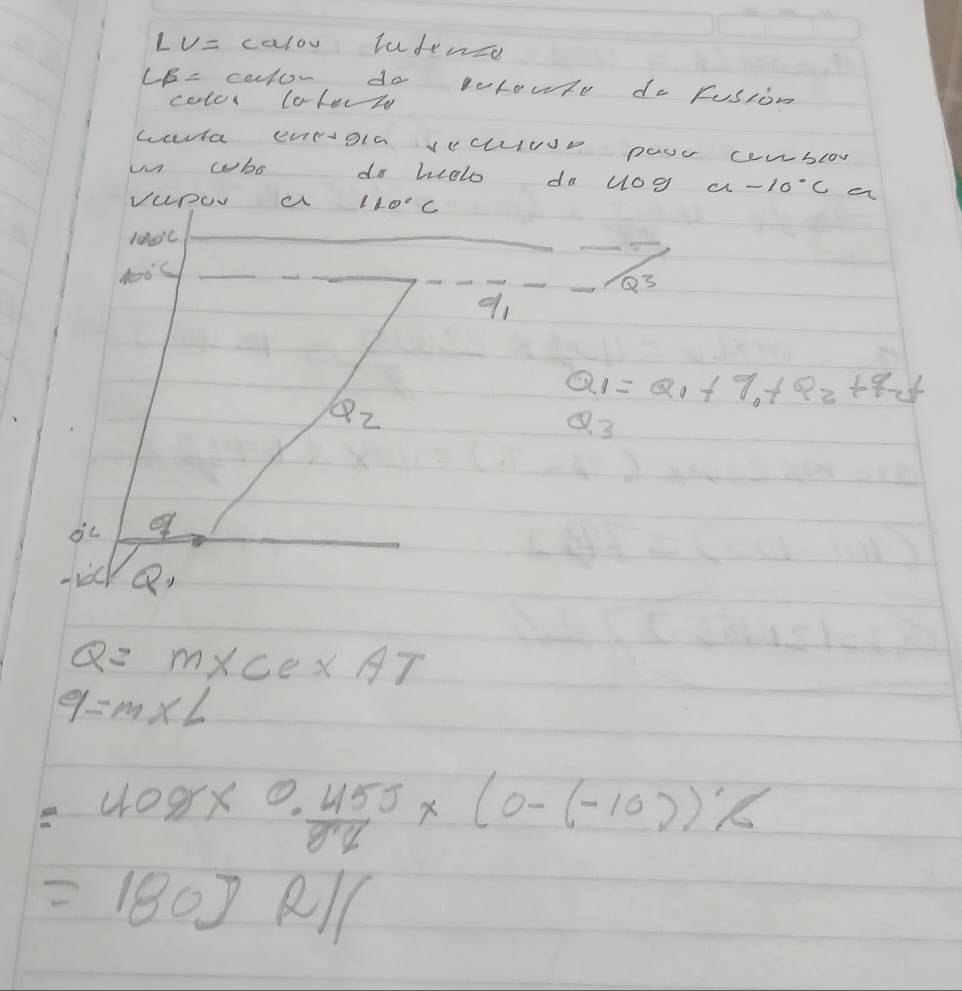 LV = calor latente
LF = calor de de Fusión
calor latente
energía para cambiar
un cubo de hielo de 40g a -10°C a
vapor a 110°C
110°C
100°C
Q3
q1
Q1 = Q1 + q1 + Q2 + q2 +
Q3
Q2
0°C q
-10°C Q1
Q = m x Ce x ΔT
q = m x L
= 40g x 0.45J x (0 - (-10))°C
g.°C
= 180J R//